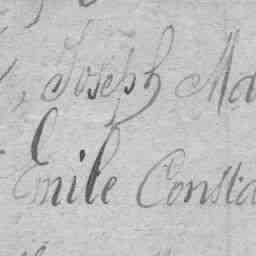 , Joseph Ma
Emile Consta